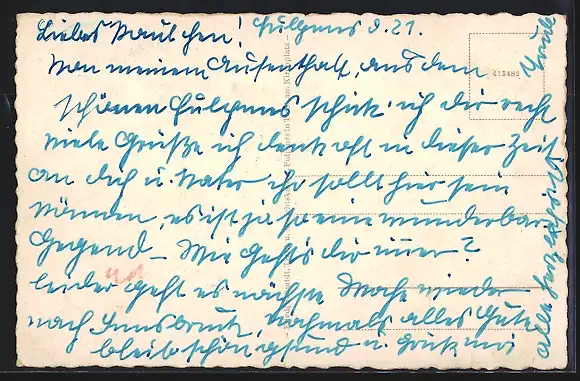 Liebes Paulchen! Fulpmes 9.21.
Von meinem Aufenthalt, aus dem
schönen Fulpmes schick ich dir recht
viele Grüße ich denk oft in dieser Zeit
an dich u. Vater ihr sollt hier sein
können, es ist ja so eine wunderbare
Gegend – Wie geht's dir immer?
leider geht es nächste Woche wieder
nach Innsbruck, nochmals alles Gute
bleib schön gsund u. Grüß mir
alle herzlichst
413482